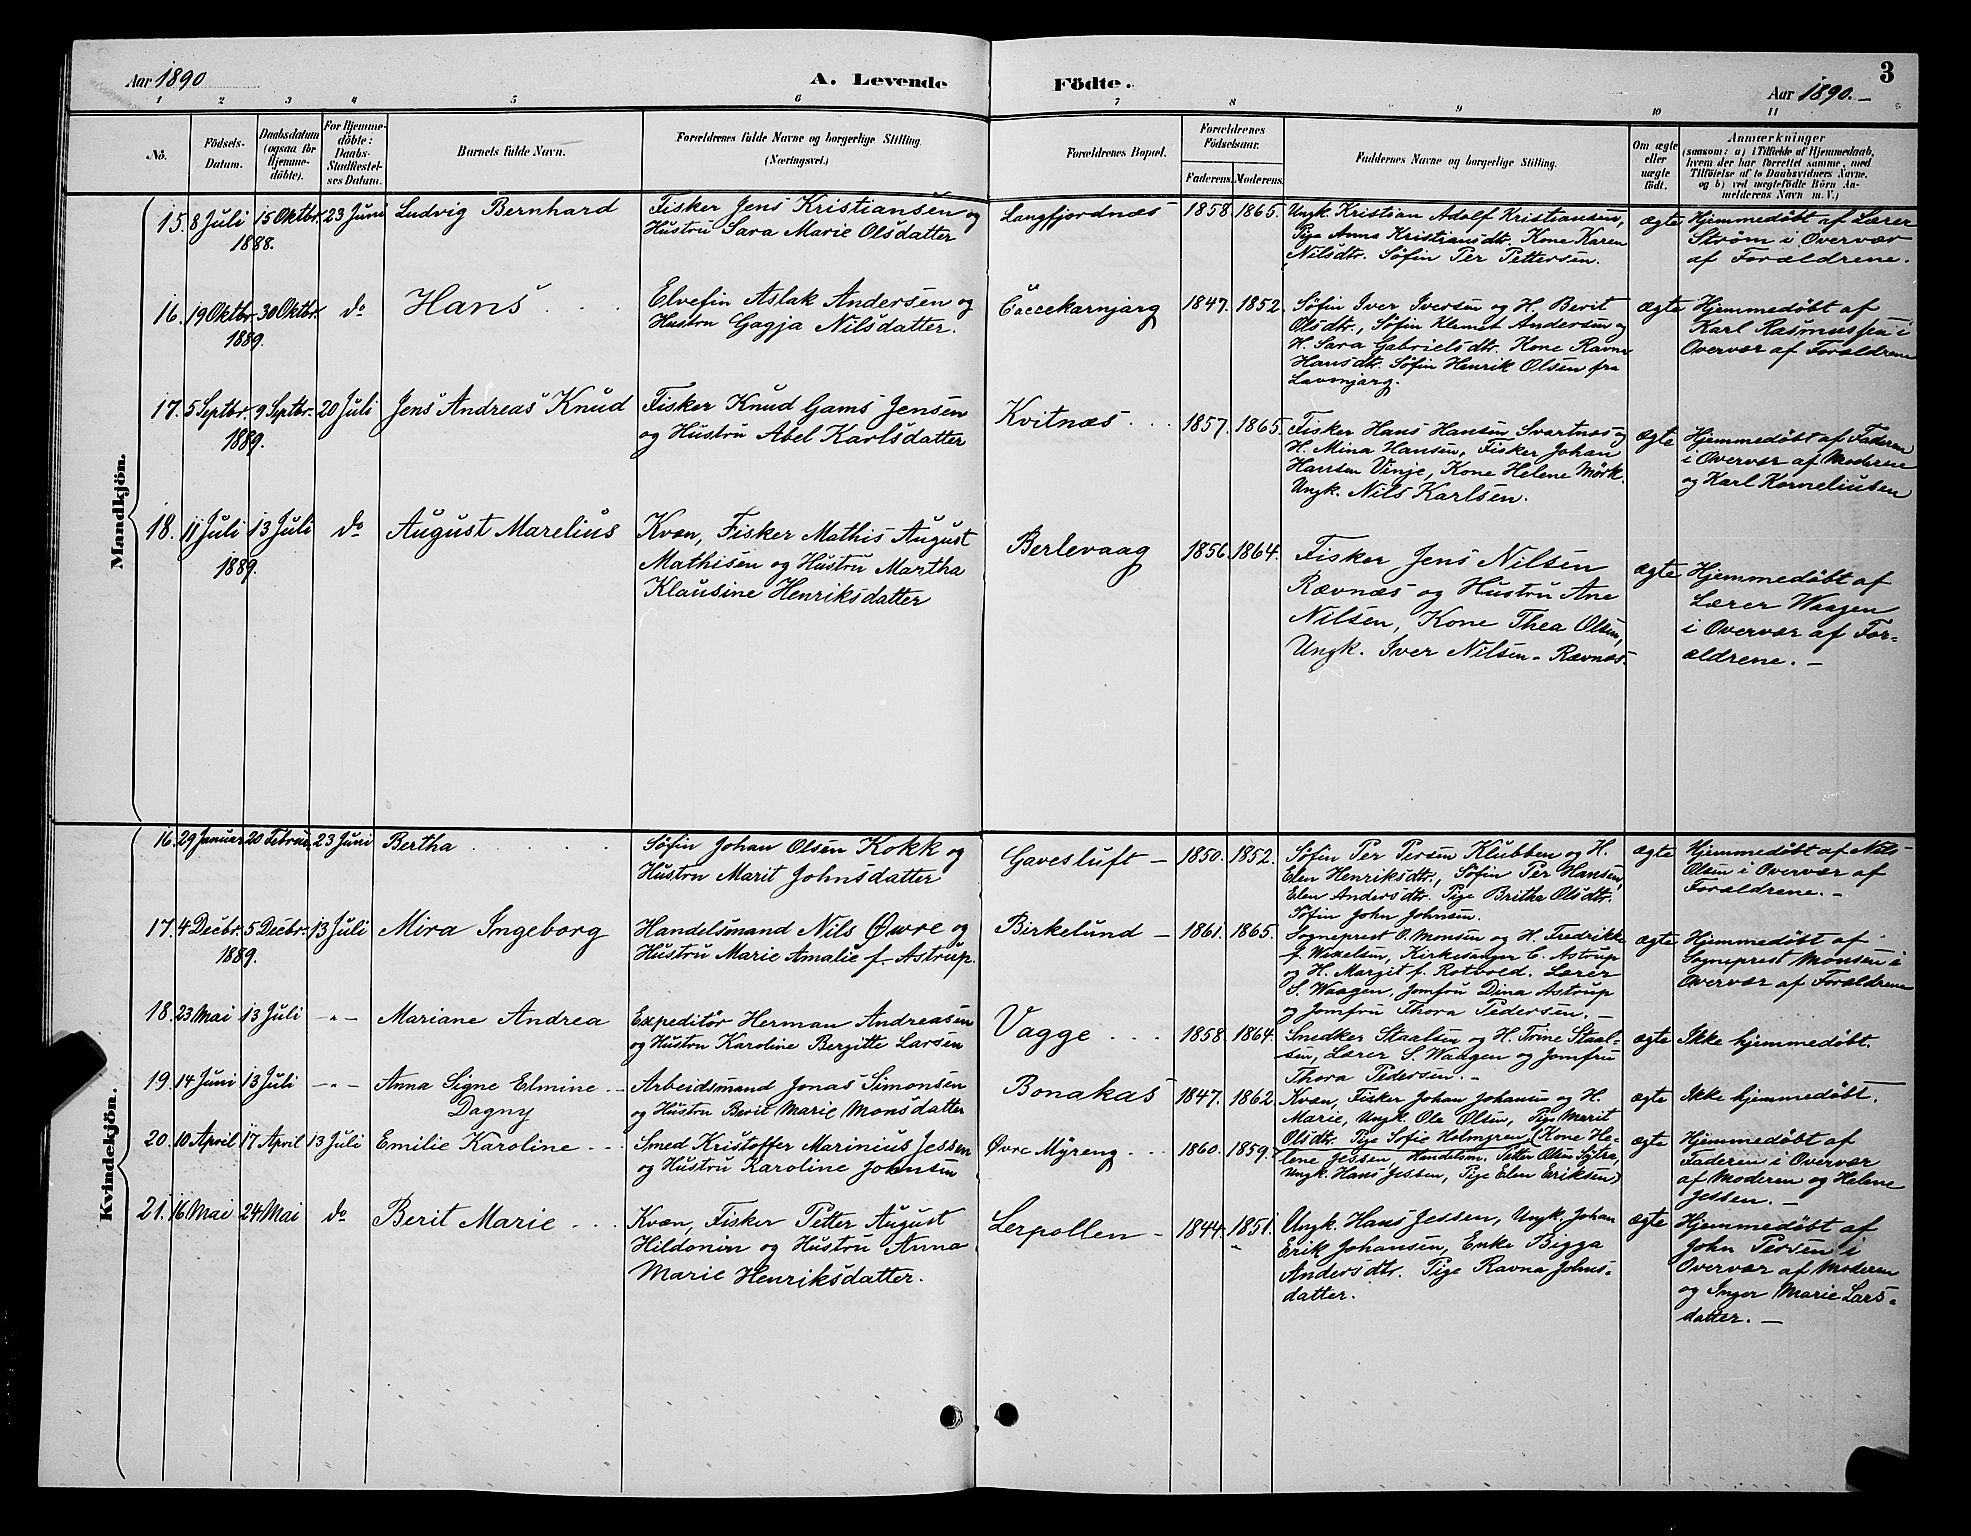 Aar 1890
A. Levende
Födte.
3
Aar 1890.
1 2 3 4 5 6 7 8 9 10 11
No.
Födsels-
Datum.
Daabsdatum
(ogsaa for
Hjemme-
döbte).
For Hjemme-
döbte:
Daabs-
Stadfæstel-
ses Datum.
Barnets fulde Navn.
Forældrenes fulde Navne og borgerlige Stilling.
(Næringsvei.)
Forældrenes Bopæl.
Forældrenes
Födselsaar.
Faderens. Moderens.
Faddernes Navne og borgerlige Stilling.
Om ægte
eller
uægte
födt.
Anmærkninger
(saasom: a) i Tilfælde af Hjemmedaab,
hvem der har forrettet samme, med
Tilföielse af to Daabsvidners Navne.
og b) ved uægtefödte Börn An-
melderens Navn m. V.)
Mandkjön.
15. 8 Juli 1888. 15 Oktbr. 23 Juni Ludvig Bernhard
Fisker Jens Kristiansen og
Hustru Sara Marie Olsdatter
Langfjordnæs 1858 1865.
Ungk. Kristian Adolf Kristiansen,
Pige Anna Kristiansdtr. Kone Karen
Nilsdtr. Søfin Per Pettersen.
ægte
Hjemmedøbt af Lærer
Strøm i Overvær
af Forældrene.
16. 19 Oktbr. 1889. 30 Oktbr. do Hans
Elvefin Aslak Andersen og
Hustru Gagja Nilsdatter.
Caccekarnjarg 1847. 1852.
Søfin Iver Iversen og H. Berit
Olsdtr., Søfin Klemet Andersen og
H. Sara Gabrielsdtr. Kone Ravna
Hansdtr. Søfin Henrik Olsen fra
Lavonjarg.
ægte
Hjemmedøbt af
Karl Rasmussen i
Overvær af Forældrene
17. 5 Septbr. 1889. 9 Septbr. 20 Juli Jens Andreas Knud
Fisker Knud Gams Jensen
og Hustru Abel Karlsdatter
Kvitnæs 1857. 1865.
Fisker Hans Hansen Svartnæs og
H. Mina Hansen, Fisker Johan
Hansen Vinje, Kone Helene Mørk.
Ungk. Nils Karlsen.
ægte
Hjemmedøbt af Faderen
i Overvær af Moderene
og Karl Korneliusen
18. 11 Juli 1889. 13 Juli do August Marelius
Kvæn, Fisker Mathis August
Mathisen og Hustru Martha
Klausine Henriksdatter
Berlevaag 1856. 1864.
Fisker Jens Nilsen
Rævnæs og Hustru Ane
Nilsen, Kone Thea Olsen,
Ungk. Iver Nilsen - Rævnæs.
ægte
Hjemmedøbt af
Lærer Waagen
i Overvær af For-
ældrene. -
Kvindekjön.
16. 29 Januar 20 Februar 23 Juni Bertha
Søfin Johan Olsen Kokk og
Hustru Marit Johnsdatter
Gavesluft - 1850. 1852.
Søfin Per Persen Klubben og H.
Elen Henriksdtr., Søfin Per Hansen,
Elen Andersdtr. Pige Britha Olsdtr.
Søfin John Johnsen.
ægte
Hjemmedøbt af Nils
Olsen i Overvær af
Forældrene. -
17. 4 Decbr. 1889. 5 Decbr. 13 Juli Mira Ingeborg
Handelsmand Nils Øvre og
Hustru Marie Amalie f. Astrup.
Birkelund - 1861. 1865.
Sogneprest O. Monsen og H. Fredrikke
f. Wexelsen, Kirkesanger C. Astrup
og H. Margit f. Rotvold. Lærer
S. Waagen, Jomfru Dina Astrup
og Jomfru Thora Pedersen. -
ægte
Hjemmedøbt af
Sogneprest Monsen i
Overvær af Forældrene
18. 23 Mai 13 Juli -"- Mariane Andrea
Expeditør Herman Andreasen
og Hustru Karoline Bergitte Larsen
Vagge 1858. 1864.
Snedker Staalsen og H. Trine Staal-
sen, Lærer S. Waagen og Jomfru
Thora Pedersen. -
ægte
Ikke hjemmedøbt.
19. 14 Juni 13 Juli -"- Anna Signe Elmine
Dagny
Arbeidsmand Jonas Simonsen
og Hustru Berit Marie Monsdatter
Bonakas 1847. 1862
Kvæn, Fisker Johan Johansen og H.
Marie, Ungk. Ole Olsen, Pige Marit
Olsdtr. Pige Sofie Holmgren.
ægte
Ikke hjemmedøbt.
20. 10 April 17 April 13 Juli Emilie Karoline
Smed Kristoffer Marinius Jessen
og Hustru Karoline Johnsen
Øvre Myreng 1860. 1859.
(Kone He-
lene Jessen, Handelsm. Petter Olsen Sylra,
Ungk. Hans Jessen, Pige Elen Eriksen)
ægte
Hjemmedøbt af
Faderen i Overvær
af Moderen og Helene
Jessen. -
21. 16 Mai 24 Mai do Berit Marie
Kvæn, Fisker Petter August
Hildonin og Hustru Anna
Marie Henriksdatter.
Lerpollen - 1844. 1851.
Ungk. Hans Jessen, Ungk. Johan
Erik Johansen, Enke Bigga
Andersdtr. Pige Ravna Johns-
datter.
ægte
Hjemmedøbt af
John Persen i
Overvær af Moderen
og Inger Marie Lars-
datter. -